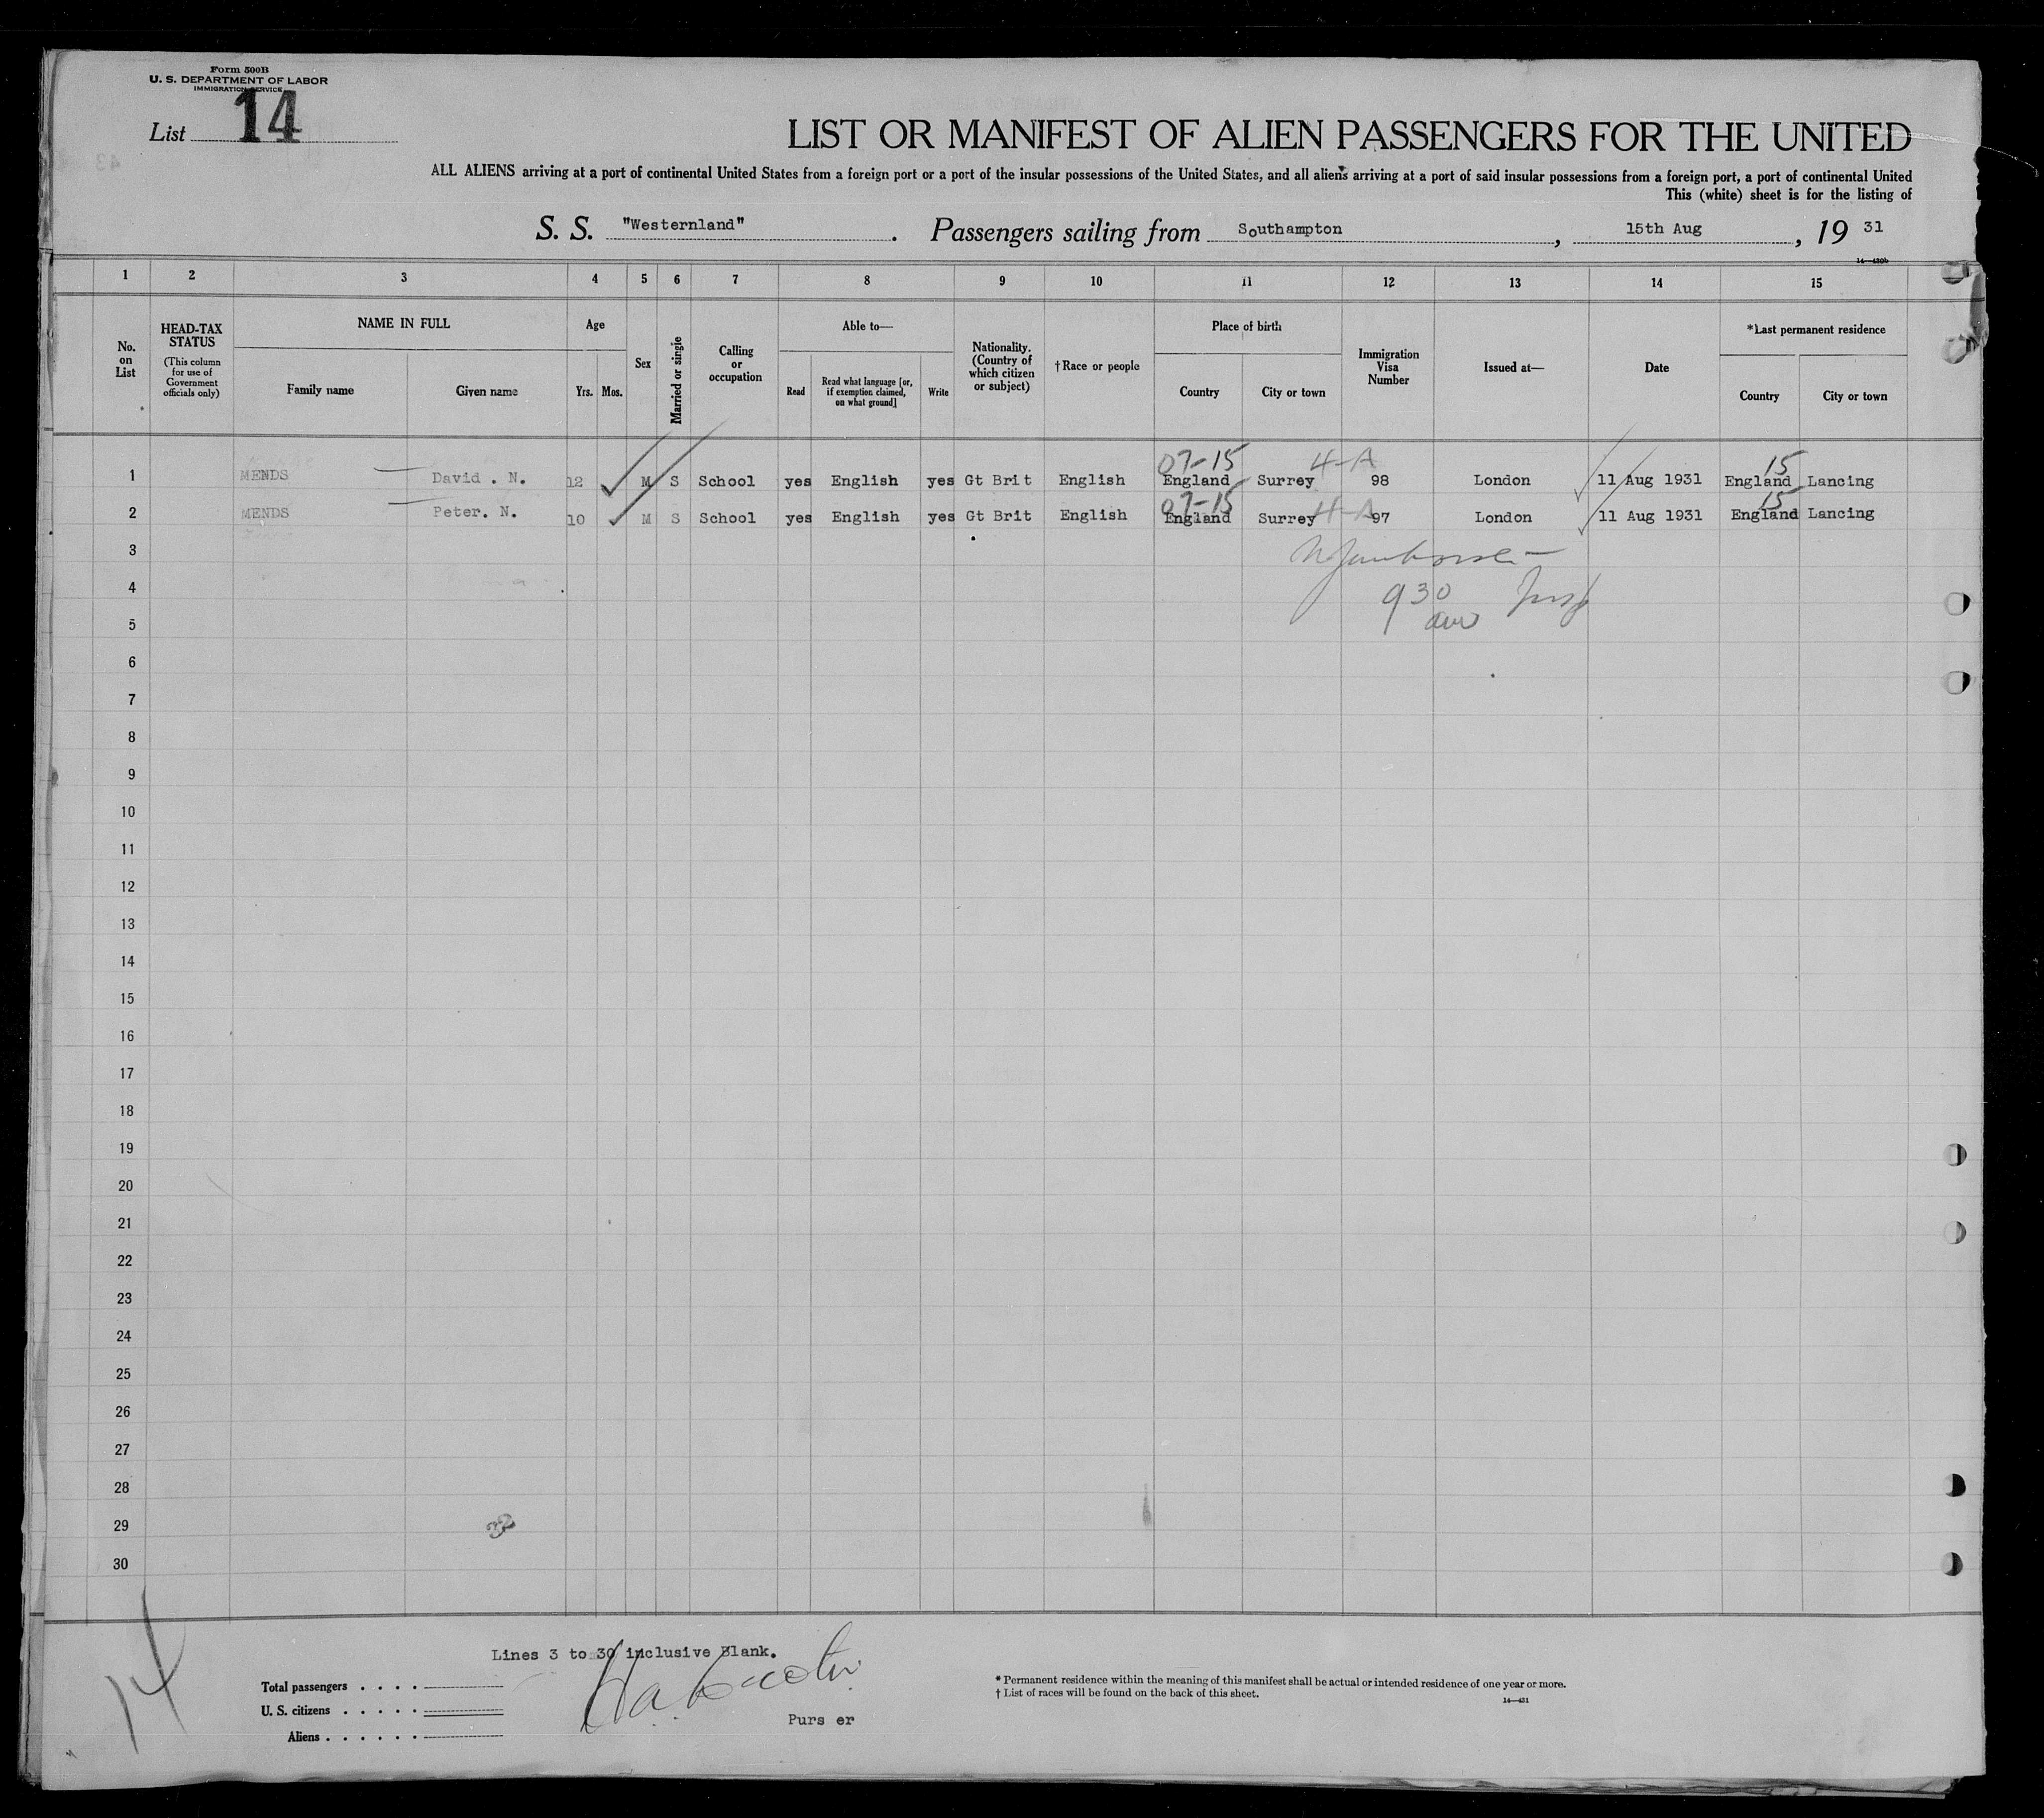 Form 500B
U. S. DEPARTMENT OF LABOR
IMMIGRATION SERVICE
List 14
LIST OR MANIFEST OF ALIEN PASSENGERS FOR THE UNITED
ALL ALIENS arriving at a port of continental United States from a foreign port or a port of the insular possessions of the United States, and all aliens arriving at a port of said insular possessions from a foreign port, a port of continental United
This (white) sheet is for the listing of
S. S. "Westernland". Passengers sailing from Southampton, 15th Aug, 19 31
14—430b
1 2 3 4 5 6 7 8 9 10 11 12 13 14 15
No. on List
HEAD-TAX STATUS
(This column for use of Government officials only)
NAME IN FULL
Family name Given name
Age
Yrs. Mos.
Sex
Married or single
Calling or occupation
Able to—
Read
Read what language [or, if exemption claimed, on what ground]
Write
Nationality. (Country of which citizen or subject)
†Race or people
Place of birth
Country City or town
Immigration Visa Number
Issued at—
Date
*Last permanent residence
Country City or town
07-15 4-A 15
1 MENDS David . N. 12 M S School yes English yes Gt Brit English England Surrey 98 London 11 Aug 1931 England Lancing
07-15 4-A 15
2 MENDS Peter. N. 10 M S School yes English yes Gt Brit English England Surrey 97 London 11 Aug 1931 England Lancing
3
4
930
5
6
7
8
9
10
11
12
13
14
15
16
17
18
19
20
21
22
23
24
25
26
27
28
29
30
14
Lines 3 to 30 inclusive Blank.
Total passengers . . . .
U. S. citizens . . . . .
Aliens . . . . . .
Purs er
* Permanent residence within the meaning of this manifest shall be actual or intended residence of one year or more.
† List of races will be found on the back of this sheet.
14—431